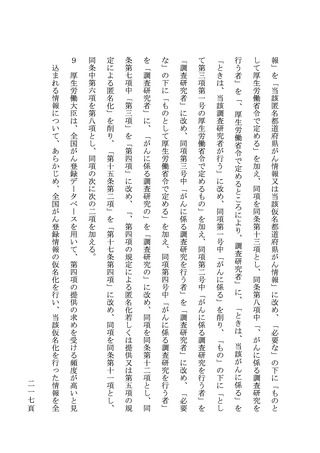 報」を「当該匿名都道府県がん情報又は当該仮名都道府県がん情報」に改め、「必要な」の下に「ものと
して厚生労働省令で定める」を加え、同項を同条第十三項とし、同条第八項中「、がんに係る調査研究を
行う者」を「、厚生労働省令で定めるところにより、調査研究者」に、「ときは、当該がんに係る」を
「ときは、当該調査研究者が行う」に改め、同項第一号中「がんに係る」を削り、「もの」の下に「とし
て第三項第一号の厚生労働省令で定めるもの」を加え、同項第二号中「がんに係る調査研究を行う者」を
「調査研究者」に改め、同項第三号中「がんに係る調査研究を行う者」を「調査研究者」に改め、「必要
な」の下に「ものとして厚生労働省令で定める」を加え、同項第四号中「がんに係る調査研究を行う者」
を「調査研究者」に、「がんに係る調査研究の」を「調査研究の」に改め、同項を同条第十二項とし、同
条第七項中「第三項」を「第四項」に改め、「、第四項の規定による匿名化若しくは提供又は第五項の規
定による匿名化」を削り、「第十五条第二項」を「第十七条第四項」に改め、同項を同条第十一項とし、
同条中第六項を第八項とし、同項の次に次の二項を加える。
９　厚生労働大臣は、全国がん登録データベースを用いて、第四項の提供の求めを受ける頻度が高いと見
込まれる情報について、あらかじめ、全国がん登録情報の仮名化を行い、当該仮名化を行った情報を全
二一七頁